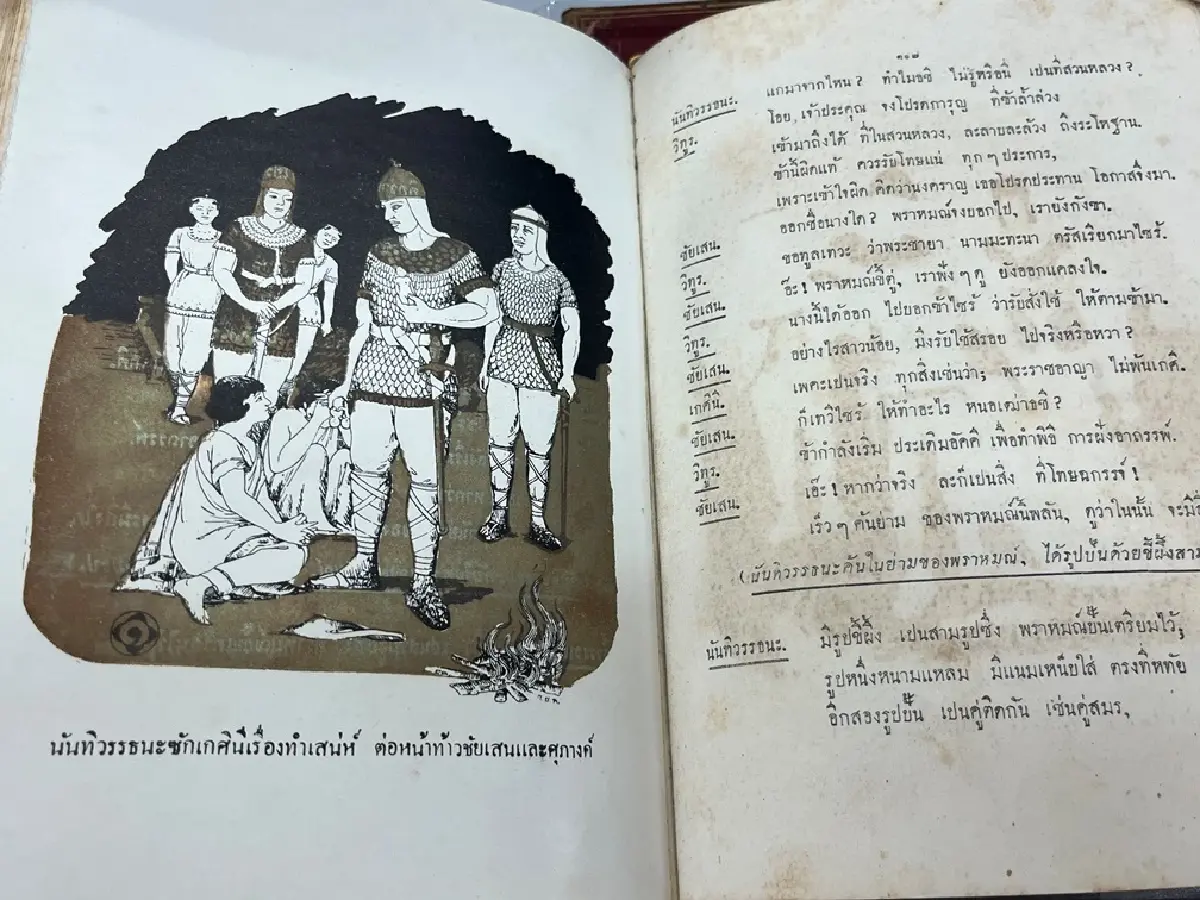 นันทิวรรธนะซักเกศินีเรื่องทำเสน่ห์ ต่อหน้าท้าวชัยเสนและศุภางค์
แกมาจากไหน? ทำไมอซิ ไม่รู้หรือนี่ เปนที่สวนหลวง?
นันทิวรรธนะ.
โอย, เจ้าประคุณ จงโปรดการุญ ที่ข้าล้ำล่วง
วิทูร.
เข้ามาถึงได้ ที่ในสวนหลวง, ละลาบละล้วง ถึงระโหฐาน.
ข้านี้ผิดแท้ ควรรับโทษแน่ ทุก ๆ ประการ,
เพราะเข้าใจผิด คิดว่านงคราญ เธอโปรดประทาน โอกาสจึ่งมา.
ออกชื่อนางใด? พราหมณ์จงบอกไป, เรายังกังขา.
ชัยเสน.
ขอทูลเทวะ ว่าพระชายา นามมะทะนา ตรัสเรียกมาไซร้.
วิทูร.
อ๊ะ! พราหมณ์ชี้คู่, เราฟัง ๆ ดู ยังออกแคลงใจ.
ชัยเสน.
นางนี้ได้ออก ไปบอกข้าไซร้ ว่ารับสั่งใช้ ให้ตามข้ามา.
วิทูร.
อย่างไรสาวน้อย, มึงรับใช้สรอย ไปจริงหรือหวา?
ชัยเสน.
เพคะเปนจริง ทุกสิ่งเช่นว่า; พระราชอาญา ไม่พ้นเกศี.
เกศินี.
ก็เทวีไซร้ ให้ทำอะไร หนอเฒ่าอซิ?
ชัยเสน.
ข้ากำลังเริ่ม ประเดิมอัคคี เพื่อทำพิธี การฝังอาถรรพ์.
วิทูร.
เอ๊ะ! หากว่าจริง ละก็เปนสิ่ง ที่โทษฉกรรจ์!
ชัยเสน.
เร็ว ๆ ค้นย่าม ของพราหมณ์นี้พลัน, ดูว่าในนั้น จะมี
(นันทิวรรธนะค้นในย่ามของพราหมณ์, ได้รูปปั้นด้วยขี้ผึ้งสาม
นันทิวรรธนะ.
มีรูปขี้ผึ้ง เปนสามรูปซึ่ง พราหมณ์ปั้นเตรียมไว้;
รูปหนึ่งหนามแหลม มีแนมเหน็บใส่ ตรงที่หทัย
อีกสองรูปปั้น เปนคู่ติดกัน เช่นคู่สมร,